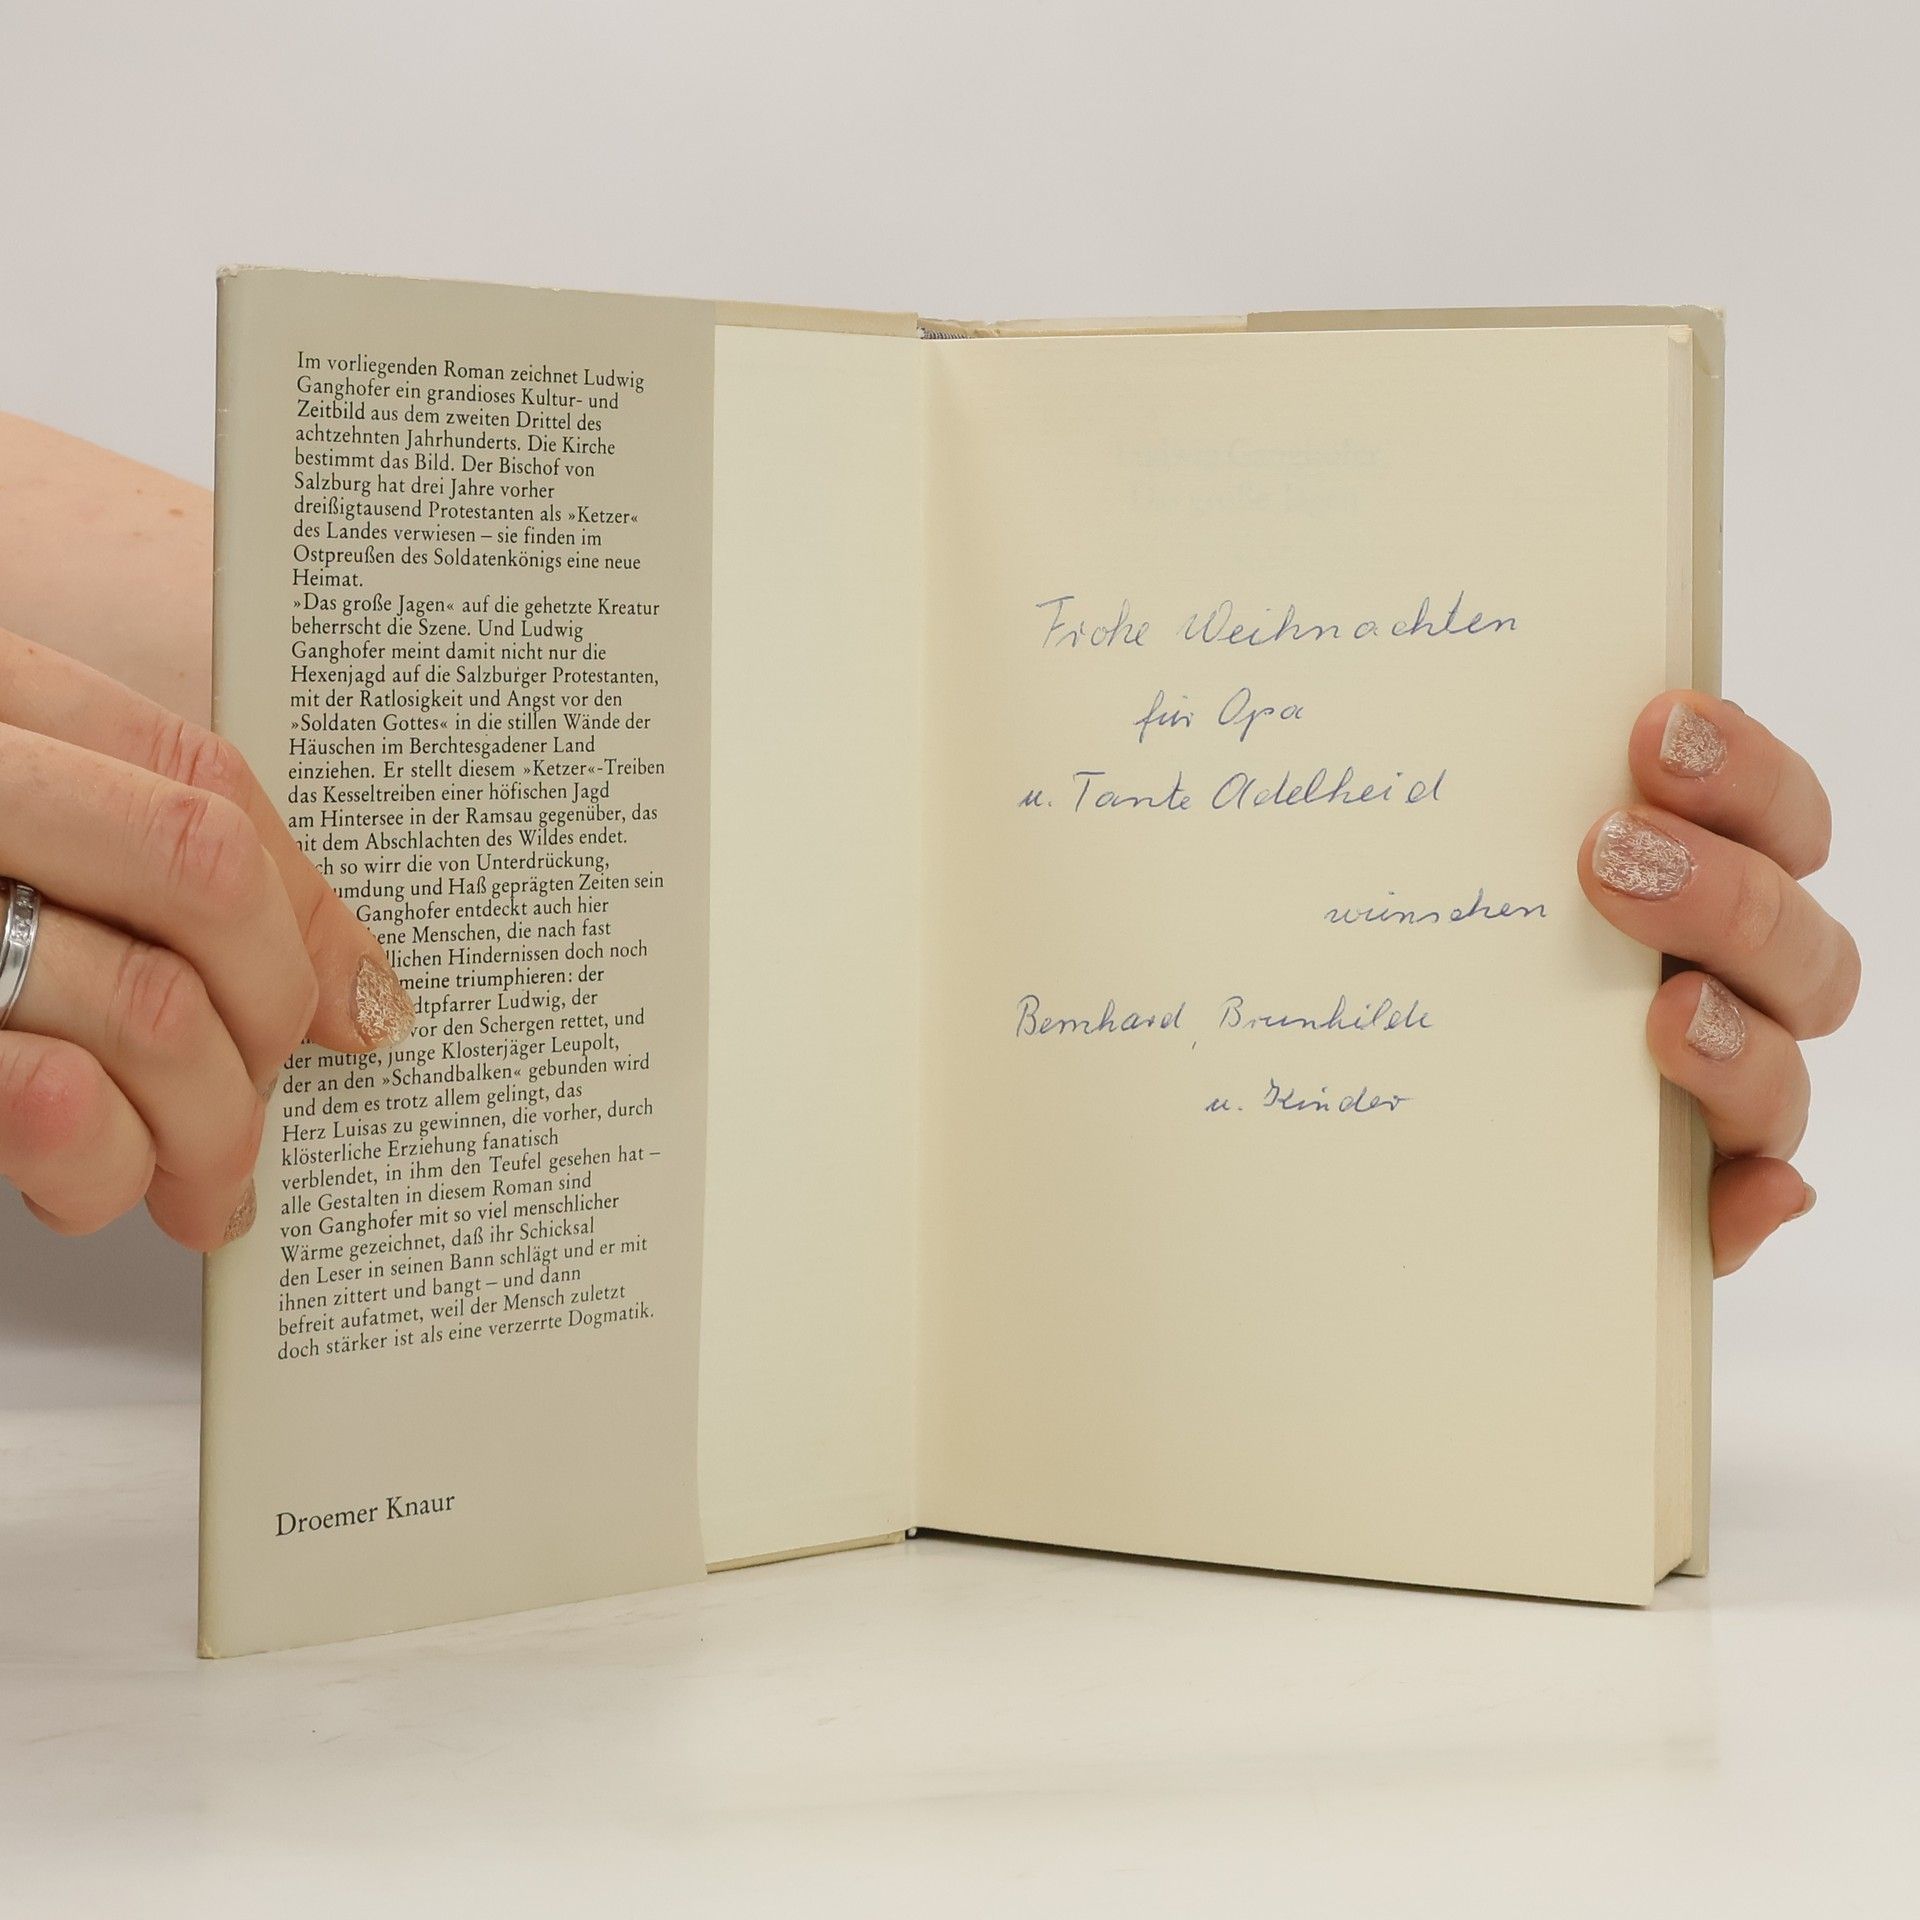 Im vorliegenden Roman zeichnet Ludwig
Ganghofer ein grandioses Kultur- und
Zeitbild aus dem zweiten Drittel des
achtzehnten Jahrhunderts. Die Kirche
bestimmt das Bild. Der Bischof von
Salzburg hat drei Jahre vorher
dreißigtausend Protestanten als »Ketzer«
des Landes verwiesen – sie finden im
Ostpreußen des Soldatenkönigs eine neue
Heimat.
»Das große Jagen« auf die gehetzte Kreatur
beherrscht die Szene. Und Ludwig
Ganghofer meint damit nicht nur die
Hexenjagd auf die Salzburger Protestanten,
mit der Ratlosigkeit und Angst vor den
»Soldaten Gottes« in die stillen Wände der
Häuschen im Berchtesgadener Land
einziehen. Er stellt diesem »Ketzer«-Treiben
das Kesseltreiben einer höfischen Jagd
am Hintersee in der Ramsau gegenüber, das
mit dem Abschlachten des Wildes endet.
so wirr die von Unterdrückung,
und Haß geprägten Zeiten sein
Ganghofer entdeckt auch hier
Menschen, die nach fast
Hindernissen doch noch
triumphieren: der
Ludwig, der
vor den Schergen rettet, und
der mutige, junge Klosterjäger Leupolt,
der an den »Schandbalken« gebunden wird
und dem es trotz allem gelingt, das
Herz Luisas zu gewinnen, die vorher, durch
klösterliche Erziehung fanatisch
verblendet, in ihm den Teufel gesehen hat –
alle Gestalten in diesem Roman sind
von Ganghofer mit so viel menschlicher
Wärme gezeichnet, daß ihr Schicksal
den Leser in seinen Bann schlägt und er mit
ihnen zittert und bangt – und dann
befreit aufatmet, weil der Mensch zuletzt
doch stärker ist als eine verzerrte Dogmatik.
Droemer Knaur
Frohe Weihnachten
für Opa
u. Tante Adelheid
wünschen
Bernhard, Brunhilde
u. Kinder